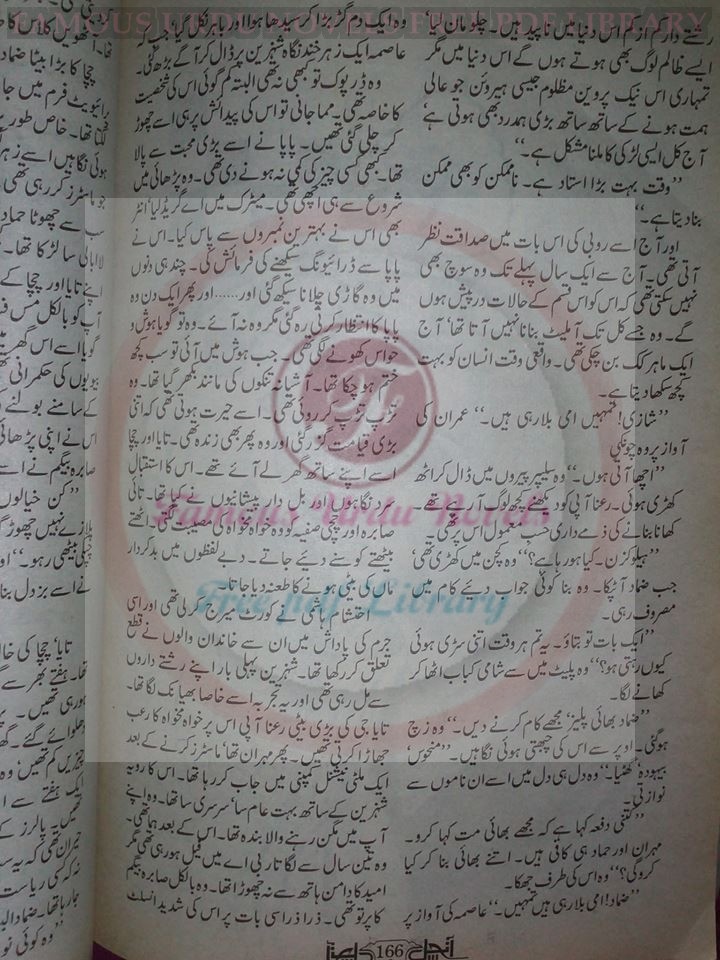 FAMOUS URDU NOVELS FREE PDF LIBRARY
رشتے دار کم از کم اس دنیا میں ناپید ہیں۔ چلو مان لیا‘
ایسے ظالم لوگ بھی ہوتے ہوں گے اس دنیا میں مگر
تمہاری اس نیک پروین مظلوم جیسی ہیروئن جو عالی
ہمت ہونے کے ساتھ ساتھ بڑی ہمدرد بھی ہوتی ہے‘
آج کل ایسی لڑکی کا ملنا مشکل ہے۔‘‘
’’وقت بہت بڑا استاد ہے۔ ناممکن کو بھی ممکن
بنا دیتا ہے۔‘‘
اور آج اسے روبی کی اس بات میں صداقت نظر
آتی تھی۔ آج سے ایک سال پہلے تک وہ سوچ بھی
نہیں سکتی تھی کہ اس کو اس قسم کے حالات درپیش ہوں
گے۔ وہ جسے کل تک آملیٹ بنانا نہیں آتا تھا‘ آج
ایک ماہر کک بن چکی تھی۔ واقعی وقت انسان کو بہت
کچھ سکھا دیتا ہے۔
’’شازی! تمہیں امی بلا رہی ہیں۔‘‘ عمران کی
آواز پر وہ چونکی
’’اچھا آتی ہوں۔‘‘ وہ سلیپر پیروں میں ڈال کر اٹھ
کھڑی ہوئی۔ رعنا آپی کو دیکھنے کچھ لوگ آ رہے تھے۔
کھانا بنانے کی ذمے داری حسب معمول اس پر تھی۔
’’ہیلو کزن۔ کیا ہو رہا ہے؟‘‘ وہ کچن میں کھڑی تھی‘
جب ضماد آ ٹپکا۔ وہ بنا کوئی جواب دیئے کام میں
مصروف رہی۔
’’ایک بات تو بتاؤ۔ یہ تم ہر وقت اتنی سڑی ہوئی
کیوں رہتی ہو؟‘‘ وہ پلیٹ میں سے شامی کباب اٹھا کر
کھانے لگا۔
’’ضماد بھائی پلیز‘ مجھے کام کرنے دیں۔‘‘ وہ زچ
ہو گئی۔ اوپر سے اس کی چبھتی ہوئی نگاہیں۔ ’’منحوس‘
بیہودہ‘ گھٹیا۔‘‘ وہ دل ہی دل میں اسے ان ناموں سے
نوازتی۔
’’کتنی دفعہ کہا ہے کہ مجھے بھائی مت کہا کرو۔
مہران اور حماد ہی کافی ہیں۔ اتنے بھائی بنا کر کیا
کرو گی؟‘‘ وہ اس کی طرف جھکا۔
’’ضماد! امی بلا رہی ہیں تمہیں۔‘‘ عاصمہ کی آواز پر
وہ ایک دم گڑبڑا کر سیدھا ہوا اور باہر نکل گیا‘ جب کہ
عاصمہ ایک زہر خند نگاہ شہزین پر ڈال کر آگے بڑھ گئی۔
وہ ڈرپوک تو کبھی نہ تھی البتہ کم گوئی اس کی شخصیت
کا خاصہ تھی۔ مما جانی تو اس کی پیدائش پر ہی اسے چھوڑ
کر چلی گئی تھیں۔ پاپا نے اسے بڑی محبت سے پالا
تھا۔ کبھی کسی چیز کی کمی نہ ہونے دی تھی۔ وہ پڑھائی میں
شروع سے ہی اچھی تھی۔ میٹرک میں اے گریڈ لیا‘ انٹر
بھی اس نے بہترین نمبروں سے پاس کیا۔ اس نے
پاپا سے ڈرائیونگ سیکھنے کی فرمائش کی۔ چند ہی دنوں
میں وہ گاڑی چلانا سیکھ گئی اور...... اور پھر ایک دن وہ
پاپا کا انتظار کرتی رہ گئی مگر وہ نہ آئے۔ وہ تو گویا ہوش و
حواس کھونے لگی تھی۔ جب ہوش میں آئی تو سب کچھ
ختم ہو چکا تھا۔ آشیانہ تنکوں کی مانند بکھر گیا تھا۔ وہ
تڑپ تڑپ کر روئی تھی۔ اسے حیرت ہوتی تھی کہ اتنی
بڑی قیامت گزر گئی اور وہ پھر بھی زندہ تھی۔ تایا اور چچا
اسے اپنے ساتھ گھر لے آئے تھے۔ اس کا استقبال
سرد نگاہوں اور بل دار پیشانیوں نے کیا تھا۔ تائی
صابرہ اور چچی صفیہ کو وہ خواہ مخواہ کی مصیبت لگی۔ اٹھتے
بیٹھتے کوسنے دیئے جاتے۔ دبے لفظوں میں بدکردار
ماں کی بیٹی ہونے کا طعنہ دیا جاتا۔
احتشام ہاشمی نے کورٹ میرج کر لی تھی اور اسی
جرم کی پاداش میں ان سے خاندان والوں نے قطع
تعلق کر رکھا تھا۔ شہزین پہلی بار اپنے رشتے داروں
سے مل رہی تھی اور یہ تجربہ اسے خاصا بھیانک لگا تھا۔
تایا جی کی بڑی بیٹی رعنا آپی اس پر خواہ مخواہ کا رعب
جھاڑا کرتی تھیں۔ پھر مہران تھا‘ ماسٹرز کرنے کے بعد
ایک ملٹی نیشنل کمپنی میں جاب کر رہا تھا۔ اس کا رویہ
شہزین کے ساتھ بہت عام سا‘ سرسری سا تھا۔ وہ اپنے
آپ میں مگن رہنے والا بندہ تھا۔ اس کے بعد ہما تھی۔
وہ تین سال سے لگاتار بی اے میں فیل ہو رہی تھی مگر
امید کا دامن ہاتھ سے نہ چھوڑا تھا۔ وہ بالکل صابرہ بیگم
کا پرتو تھی۔ ذرا ذرا سی بات پر اس کی شدید انسلٹ
آنچل
166
Famous Urdu Novels
Free pdf Library